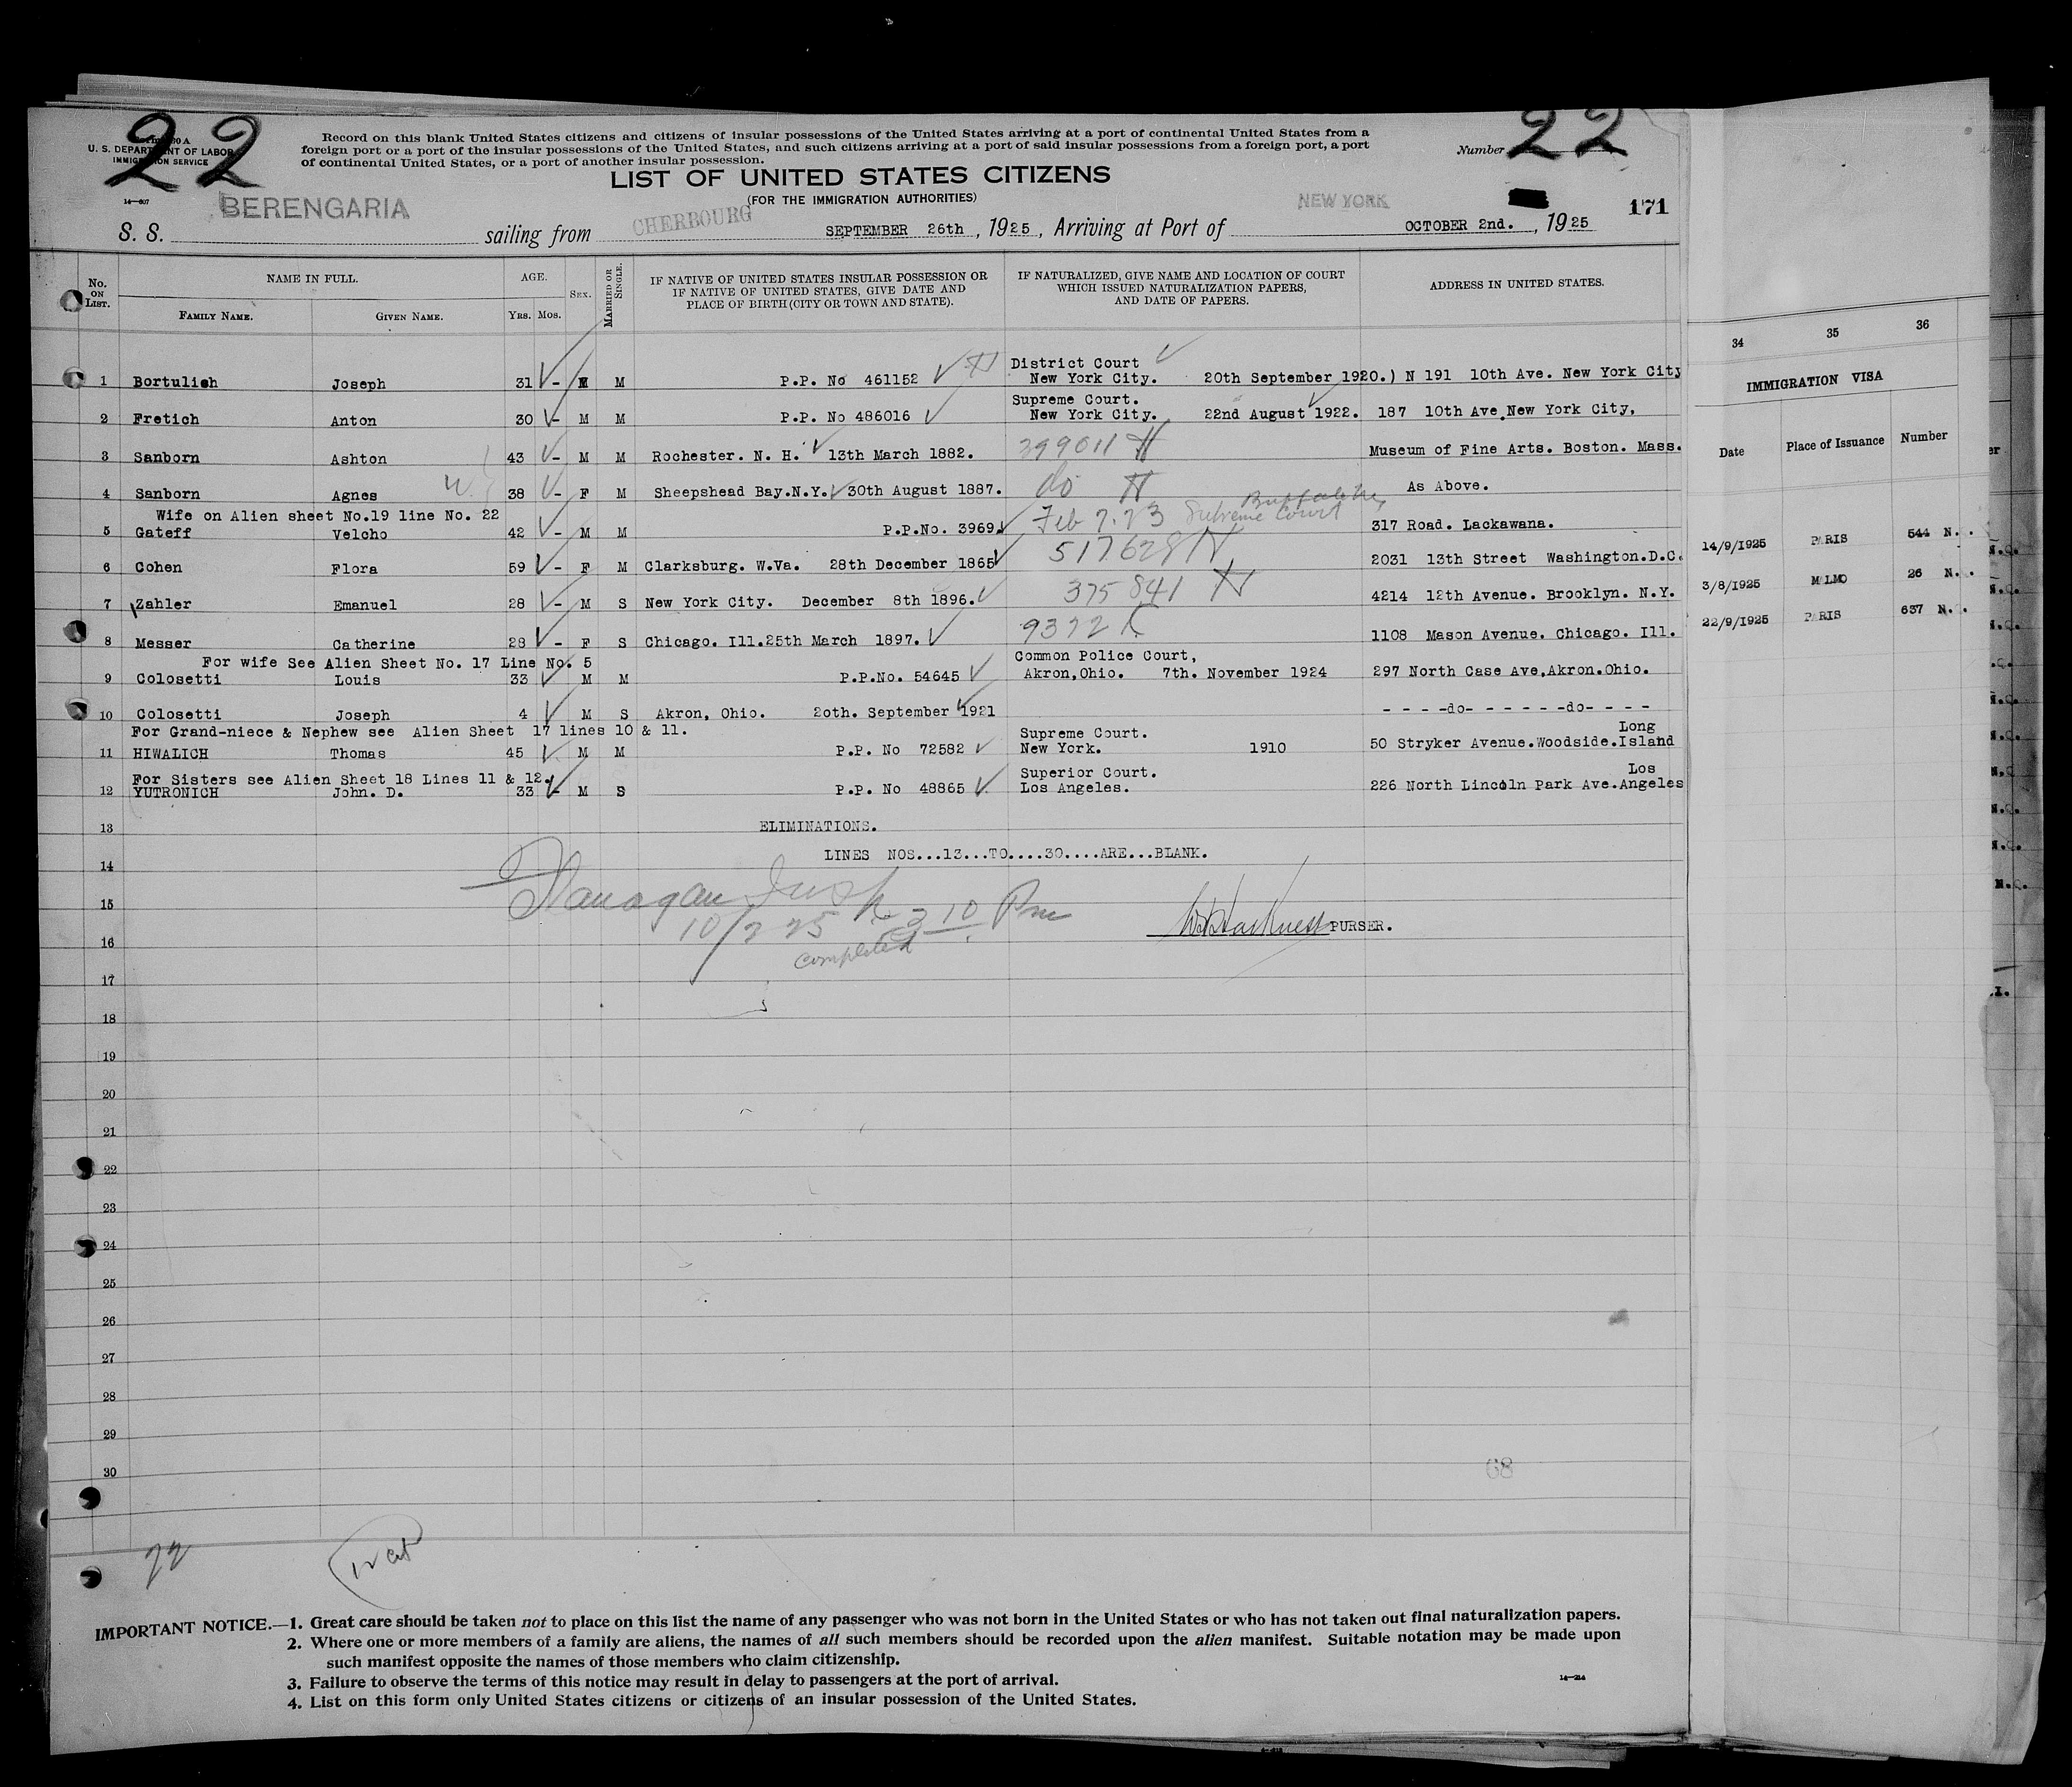 22 22
U. S. DEPARTMENT OF LABOR
IMMIGRATION SERVICE
Record on this blank United States citizens and citizens of insular possessions of the United States arriving at a port of continental United States from a
foreign port or a port of the insular possessions of the United States, and such citizens arriving at a port of said insular possessions from a foreign port, a port
of continental United States, or a port of another insular possession.
Number
LIST OF UNITED STATES CITIZENS
(FOR THE IMMIGRATION AUTHORITIES)
14—607
171
S. S. BERENGARIA sailing from CHERBOURG SEPTEMBER 26th, 1925, Arriving at Port of NEW YORK OCTOBER 2nd., 1925
No. ON LIST. NAME IN FULL. AGE. SEX. MARRIED OR SINGLE. IF NATIVE OF UNITED STATES INSULAR POSSESSION OR IF NATIVE OF UNITED STATES, GIVE DATE AND PLACE OF BIRTH (CITY OR TOWN AND STATE). IF NATURALIZED, GIVE NAME AND LOCATION OF COURT WHICH ISSUED NATURALIZATION PAPERS, AND DATE OF PAPERS. ADDRESS IN UNITED STATES.
FAMILY NAME. GIVEN NAME. YRS. MOS.
District Court
1 Bortulich Joseph 31 - M M P.P. No 461152 New York City. 20th September 1920.) N 191 10th Ave. New York City
Supreme Court.
2 Fretich Anton 30 - M M P.P. No 486016 New York City. 22nd August 1922. 187 10th Ave.New York City,
3 Sanborn Ashton 43 - M M Rochester. N. H. 13th March 1882. 399011 Museum of Fine Arts. Boston. Mass.
4 Sanborn Agnes W 38 - F M Sheepshead Bay.N.Y. 30th August 1887. do As Above.
Wife on Alien sheet No.19 line No. 22
5 Gateff Velcho 42 - M M P.P.No. 3969. Feb 7. 23 Supreme Court Buffalo 317 Road. Lackawana.
6 Cohen Flora 59 - F M Clarksburg. W.Va. 28th December 1865 517628 N 2031 13th Street Washington.D.C.
7 Zahler Emanuel 28 - M S New York City. December 8th 1896. 375841 4214 12th Avenue. Brooklyn. N.Y.
8 Messer Catherine 28 - F S Chicago. Ill.25th March 1897. 9372 1108 Mason Avenue. Chicago. Ill.
For wife See Alien Sheet No. 17 Line No. 5 Common Police Court,
9 Colosetti Louis 33 M M P.P.No. 54645 Akron,Ohio. 7th. November 1924 297 North Case Ave,Akron.Ohio.
10 Colosetti Joseph 4 M S Akron, Ohio. 20th. September 1921 - - - -do- - - - - -do- - - -
For Grand-niece & Nephew see Alien Sheet 17 lines 10 & 11. Supreme Court. Long
11 HIWALICH Thomas 45 M M P.P. No 72582 New York. 1910 50 Stryker Avenue.Woodside.Island
For Sisters see Alien Sheet 18 Lines 11 & 12. Superior Court. Los
12 YUTRONICH John. D. 33 - M S P.P. No 48865 Los Angeles. 226 North Lincoln Park Ave.Angeles
13 ELIMINATIONS.
LINES NOS...13...TO....30....ARE...BLANK.
14
15 Flanagan Insp
10/2 25 3 10 Pm
PURSER.
16 completed
17
18
19
20
21
22
23
24
25
26
27
28
29
30
68
22
IMPORTANT NOTICE.—1. Great care should be taken not to place on this list the name of any passenger who was not born in the United States or who has not taken out final naturalization papers.
2. Where one or more members of a family are aliens, the names of all such members should be recorded upon the alien manifest. Suitable notation may be made upon
such manifest opposite the names of those members who claim citizenship.
3. Failure to observe the terms of this notice may result in delay to passengers at the port of arrival.
4. List on this form only United States citizens or citizens of an insular possession of the United States.
14—214
34 35 36
IMMIGRATION VISA
Date Place of Issuance Number
14/9/1925 PARIS 544 N.
3/8/1925 MALMO 26 N.
22/9/1925 PARIS 637 N.